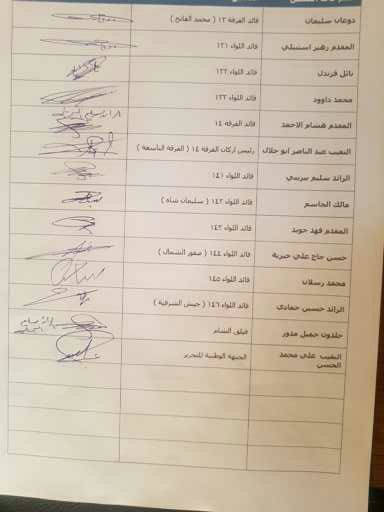 دوعان سليمان قائد الفرقة ١٢ ( محمد الفاتح )
المقدم زهير اسنبيلي قائد اللواء ١٢١
نائل قرندل قائد اللواء ١٢٢
محمد داوود قائد اللواء ١٢٣
المقدم هشام الاحمد قائد الفرقة ١٤
النقيب عبد الناصر ابو جلال رئيس اركان الفرقة ١٤ ( الفرقة التاسعة )
الرائد سليم بيريني قائد اللواء ١٤١
مالك الجاسم قائد اللواء ١٤٢ ( سليمان شاه )
المقدم فهد حويد قائد اللواء ١٤٣
حسن حاج علي خيرية قائد اللواء ١٤٤ ( صقور الشمال )
محمد رسلان قائد اللواء ١٤٥
الرائد حسين حمادي قائد اللواء ١٤٦ ( جيش الشرقية )
خلدون جميل مدور فيلق الشام
النقيب علي محمد الجبهة الوطنية للتحرير
الحسن